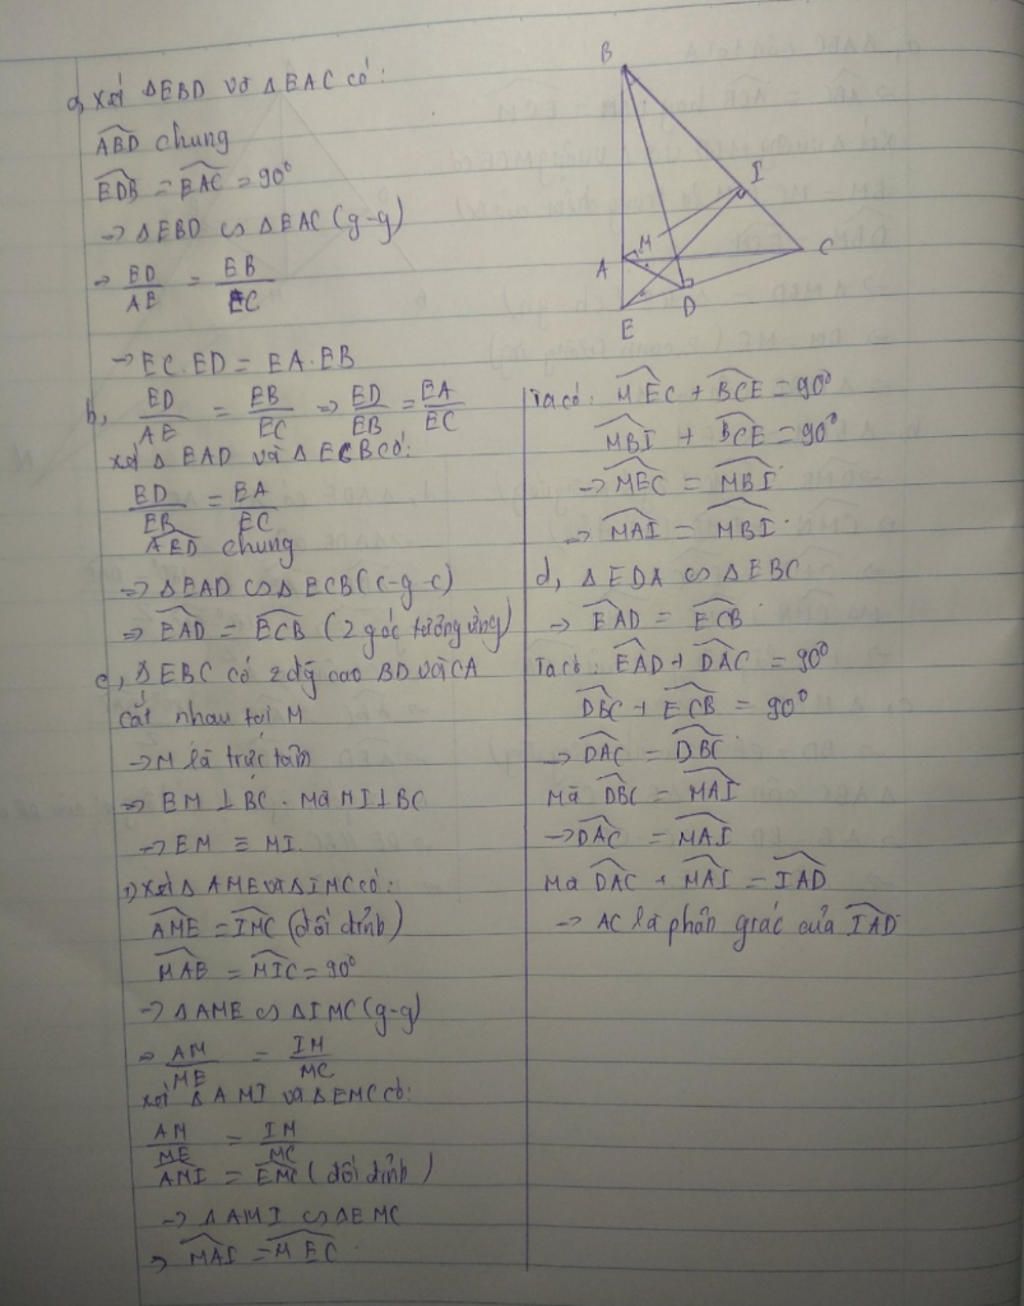 a, Xét ΔEBD và ΔEAC có:
ABD chung
EDB = EAC = 90°
→ ΔEBD ∽ ΔEAC (g-g)
→ ED/AE = EB/EC
→ EC.ED = EA.EB
b, ED/AE = EB/EC ⇒ ED/EB = EA/EC
xét Δ EAD và Δ ECB có:
ED/EB = EA/EC
AED chung
→ ΔEAD ∽ Δ ECB (c-g-c)
⇒ EAD = ECB (2 góc tương ứng)
c, ΔEBC có 2 đg cao BD và CA
cắt nhau tại M
→ M là trực tâm
→ EM ⊥ BC. Mà MI ⊥ BC
→ EM ≡ MI.
1) Xét Δ AME và Δ IMC có:
AME = IMC (đối đỉnh)
MAB = MIC = 90°
→ ΔAME ∽ ΔIMC (g-g)
⇒ AM/ME = IM/MC
xét Δ AMI và ΔEMC có:
AM/ME = IM/MC
AMI = EMC (đối đỉnh)
→ ΔAMI ∽ ΔEMC
⇒ MAI = MEC.
B
I
M
A
C
D
E
Ta có: MEC + BCE = 90°
MBI + BCE = 90°
→ MEC = MBI
⇒ MAI = MBI.
d, ΔEDA ∽ ΔEBC
→ EAD = ECB
Ta có: EAD + DAC = 90°
DBC + ECB = 90°
→ DAC = DBC
Mà DBC = MAI
→ DAC = MAI
Mà DAC + MAI = IAD
→ AC là phân giác của IAD